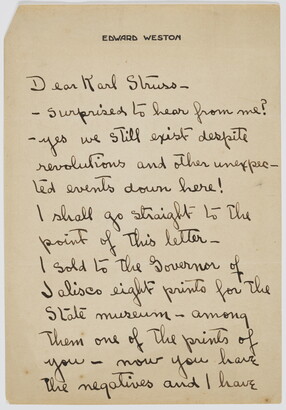 EDWARD WESTON
Dear Karl Struss—
- surprised to hear from me?
- yes we still exist despite
revolutions and other unexpec-
ted events down here!
I shall go straight to the
point of this letter—
I sold to the Governor of
Jalisco eight prints for the
State museum — among
them one of the prints of
you — now you have
the negatives and I have